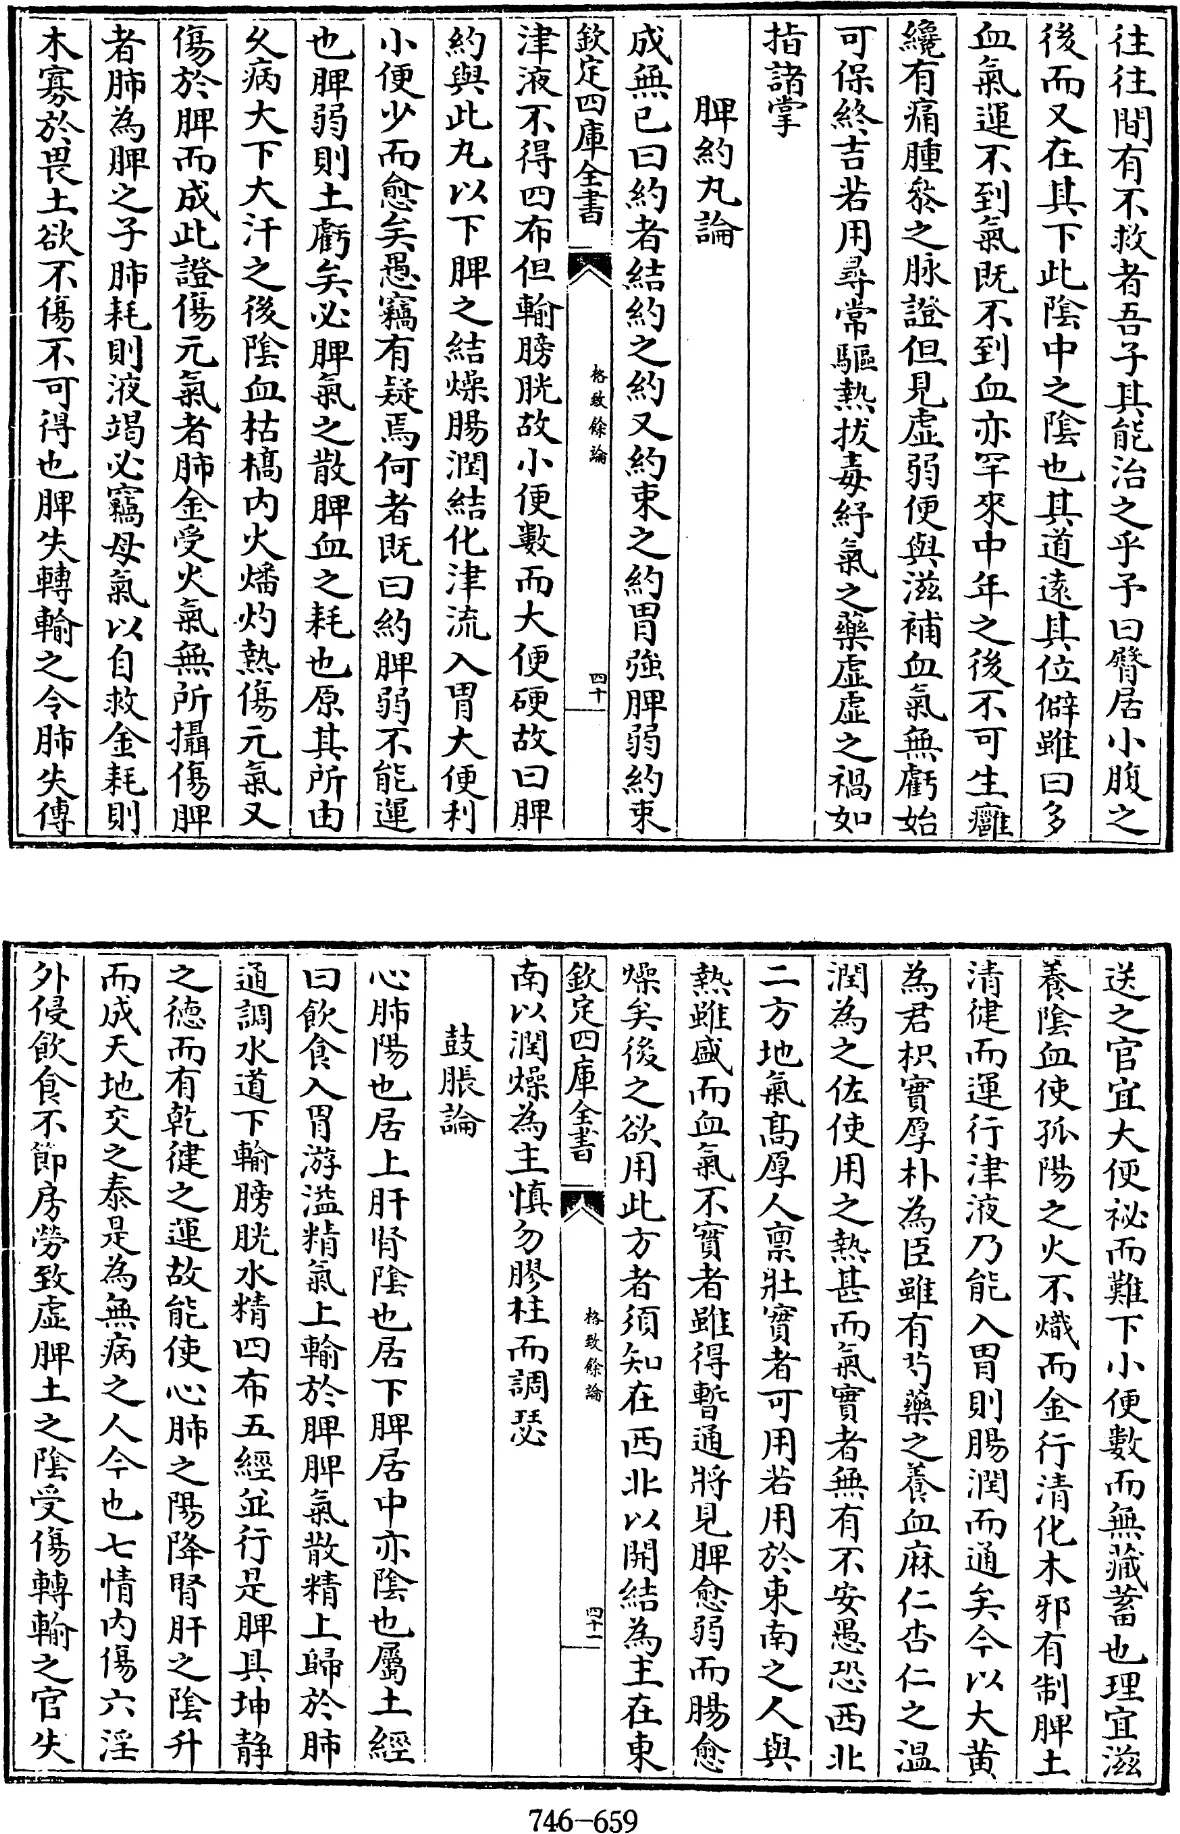 往往間有不救者吾子其能治之乎予曰臀居小腹之
後而又在其下此陰中之陰也其道遠其位僻雖曰多
血氣運不到氣既不到血亦罕來中年之後不可生癰
纔有痛腫參之脉證但見虛弱便與滋補血氣無虧始
可保終吉若用尋常驅熱拔毒紓氣之藥虛虛之禍如
指諸掌
脾約丸論
成無已曰約者結約之約又約束之約胃強脾弱約束
欽定四庫全書
格致餘論
四十
津液不得四布但輸膀胱故小便數而大便硬故曰脾
約與此丸以下脾之結燥腸潤結化津流入胃大便利
小便少而愈矣愚竊有疑焉何者既曰約脾弱不能運
也脾弱則土虧矣必脾氣之散脾血之耗也原其所由
乆病大下大汗之後陰血枯槁内火燔灼熱傷元氣又
傷於脾而成此證傷元氣者肺金受火氣無所攝傷脾
者肺為脾之子肺耗則液竭必竊母氣以自救金耗則
木寡於畏土欲不傷不可得也脾失轉輸之令肺失傳
送之官宜大便祕而難下小便數而無藏蓄也理宜滋
養陰血使孤陽之火不熾而金行清化木邪有制脾土
清健而運行津液乃能入胃則腸潤而通矣今以大黄
為君枳實厚朴為臣雖有芍藥之養血麻仁杏仁之温
潤為之佐使用之熱甚而氣實者無有不安愚恐西北
二方地氣髙厚人禀壯實者可用若用於東南之人與
熱雖盛而血氣不實者雖得暫通將見脾愈弱而腸愈
燥矣後之欲用此方者須知在西北以開結為主在東
欽定四庫全書
格致餘論
四十一
南以潤燥為主慎勿膠柱而調瑟
鼓脹論
心肺陽也居上肝腎陰也居下脾居中亦陰也屬土經
曰飲食入胃游溢精氣上輸於脾脾氣散精上歸於肺
通調水道下輸膀胱水精四布五經並行是脾具坤静
之徳而有乾健之運故能使心肺之陽降腎肝之陰升
而成天地交之泰是為無病之人今也七情内傷六淫
外侵飲食不節房勞致虛脾土之陰受傷轉輸之官失
746-659